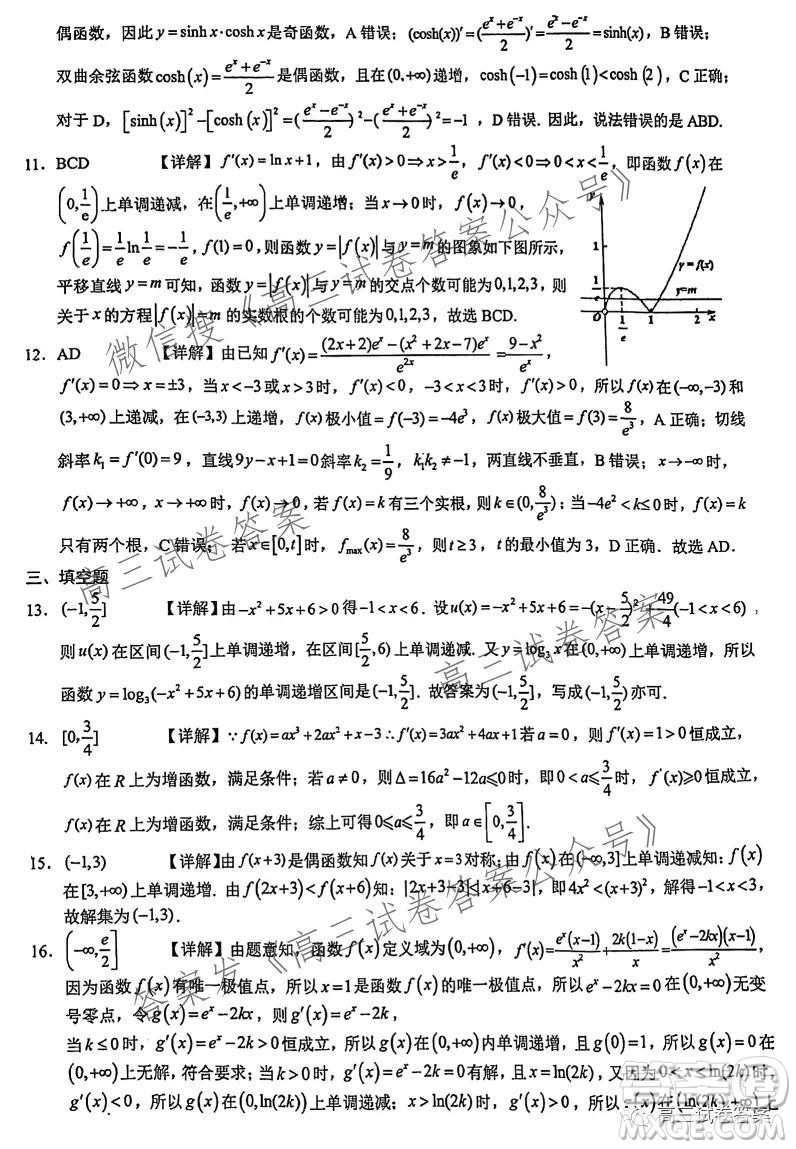 偶函数，因此 y=sinhx·coshx 是奇函数，A 错误；(cosh(x))′=((eˣ+e⁻ˣ)/2)′=(eˣ-e⁻ˣ)/2=sinh(x)，B 错误；
双曲余弦函数 cosh(x)=(eˣ+e⁻ˣ)/2 是偶函数，且在(0,+∞)递增，cosh(-1)=cosh(1)<cosh(2)，C 正确；
对于 D，[sinh(x)]²-[cosh(x)]²=((eˣ-e⁻ˣ)/2)²-((eˣ+e⁻ˣ)/2)²=-1，D 错误. 因此，说法错误的是 ABD.
11．BCD 【详解】f′(x)=lnx+1，由 f′(x)>0⇒x>1/e，f′(x)<0⇒0<x<1/e，即函数 f(x) 在
(0,1/e)上单调递减，在(1/e,+∞)上单调递增；当 x→0 时，f(x)→0，
f(1/e)=1/e ln 1/e=-1/e，f(1)=0，则函数 y=|f(x)| 与 y=m 的图象如下图所示，
平移直线 y=m 可知，函数 y=|f(x)| 与 y=m 的交点个数可能为 0,1,2,3，则
关于 x 的方程|f(x)|=m 的实数根的个数可能为 0,1,2,3，故选 BCD.
y
1
y=f(x)
y=m
O
1/e
1
2
x
12．AD 【详解】由已知 f′(x)=((2x+2)eˣ-(x²+2x-7)eˣ)/e²ˣ=(9-x²)/eˣ，
f′(x)=0⇒x=±3，当 x<-3 或 x>3 时，f′(x)<0，-3<x<3 时，f′(x)>0，所以 f(x) 在(-∞,-3)和
(3,+∞)上递减，在(-3,3)上递增，f(x)极小值=f(-3)=-4e³，f(x)极大值=f(3)=8/e³，A 正确；切线
斜率 k₁=f′(0)=9，直线 9y-x+1=0 斜率 k₂=1/9，k₁k₂≠-1，两直线不垂直，B 错误；x→-∞ 时，
f(x)→+∞，x→+∞ 时，f(x)→0，若 f(x)=k 有三个实根，则 k∈(0,8/e³)；当-4e²<k≤0 时，f(x)=k
只有两个根，C 错误； 若 x∈[0,t]时，f_max(x)=8/e³，则 t≥3，t 的最小值为 3，D 正确．故选 AD．
三、填空题
13．(-1,5/2] 【详解】由-x²+5x+6>0 得-1<x<6．设 u(x)=-x²+5x+6=-(x-5/2)²+49/4(-1<x<6)，
则 u(x) 在区间(-1,5/2]上单调递增，在区间[5/2,6)上单调递减．又 y=log₃x 在(0,+∞)上单调递增，所以
函数 y=log₃(-x²+5x+6)的单调递增区间是(-1,5/2]．故答案为(-1,5/2]，写成(-1,5/2)亦可．
14．[0,3/4] 【详解】∵f(x)=ax³+2ax²+x-3∴f′(x)=3ax²+4ax+1 若 a=0，则 f′(x)=1>0 恒成立，
f(x) 在 R 上为增函数，满足条件；若 a≠0，则Δ=16a²-12a≤0 时，即 0<a≤3/4 时，f′(x)>0 恒成立，
f(x) 在 R 上为增函数，满足条件；综上可得 0≤a≤3/4，即 a∈[0,3/4]．
15．(-1,3) 【详解】由 f(x+3)是偶函数知 f(x) 关于 x=3 对称；由 f(x) 在(-∞,3]上单调递减知：f(x)
在[3,+∞)上单调递增．由 f(2x+3)<f(x+6)知：|2x+3-3|<|x+6-3|，即 4x²<(x+3)²，解得
故解集为(-1,3)．
16．(-∞,e/2] 【详解】由题意知，函数 f(x) 定义域为(0,+∞)，f′(x)=eˣ(x-1)/x²+2k(1-x)/x=(eˣ-2kx)(x-1)/x²，
因为函数 f(x) 有唯一极值点，所以 x=1 是函数 f(x) 的唯一极值点，所以 eˣ-2kx 在(0,+∞)内无变
号零点，令 g(x)=eˣ-2kx，则 g′(x)=eˣ-2k，
当 k≤0 时，g′(x)=eˣ-2k>0 恒成立，所以 g(x) 在(0,+∞)内单调递增，且 g(0)=1，所以 g(x)=0 在
(0,+∞)上无解，符合要求；当 k>0 时，g′(x)=eˣ-2k=0 有解，x=ln(2k)，又因为 0<x<ln(2k)时，
g′(x)<0，所以 g(x) 在(0,ln(2k))上单调递减；x>ln(2k)时，g′(x)>0，所以 g(x) 在(ln(2k),+∞)上
微信搜《高三试卷答案公众号》
高三试卷答案
高三试卷答案
答案发《高三试卷答案公众号》
高三试卷答案
MXQE.COM